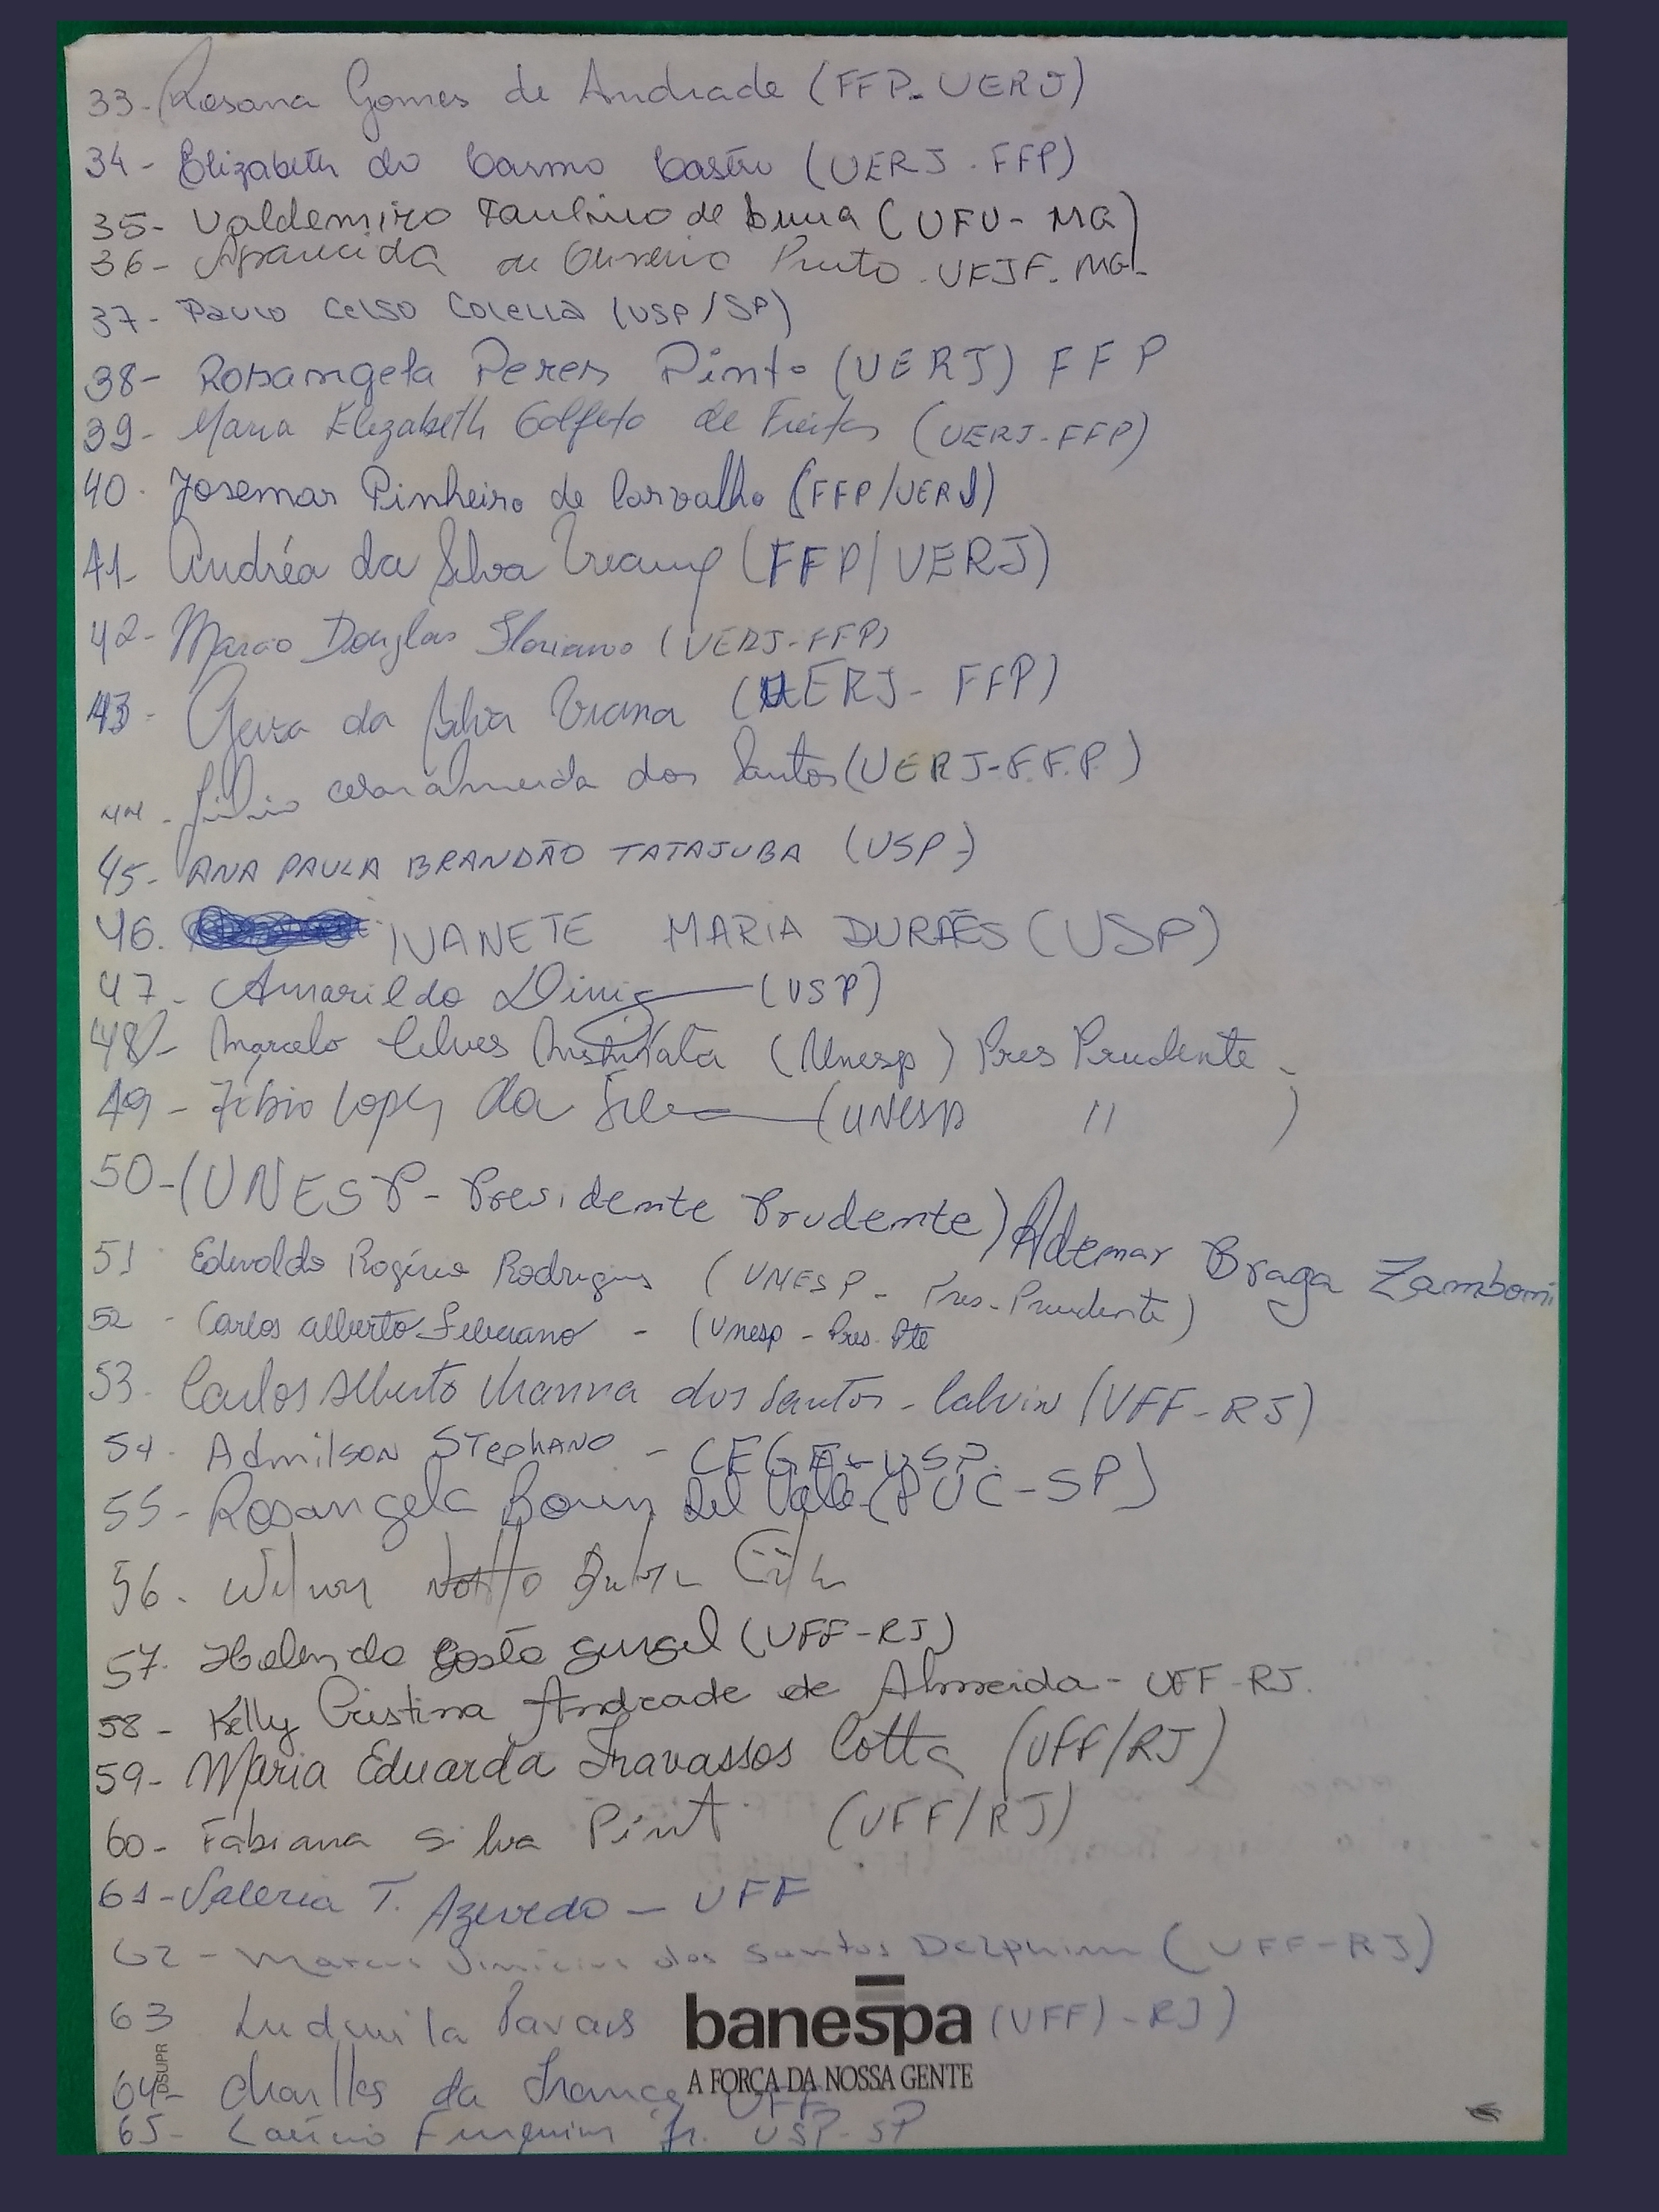 33- Rosana Gomes de Andrade (FFP-UERJ)
34 - Elizabeth do Carmo Castro (UERJ - FFP)
35- Valdemiro Paulino de (UFU - MG)
36 - Aparecida de Pinto - UFJF - MG
37 - Paulo Celso Colella (USP/SP)
38 - Rosangela Peres Pinto (UERJ) FFP
39 - Maria Elizabeth Golfeto de Freitas (UERJ-FFP)
40 - Josemar Pinheiro de Carvalho (FFP/UERJ)
41- Andréa da Silva (FFP/UERJ)
42- Marcio Douglas Floriano (UERJ-FFP)
43 - Geisa da Silva Viana (UERJ - FFP)
44 - Júlio Cesar Almeida dos Santos (UERJ-F.F.P.)
45- ANA PAULA BRANDÃO TATAJUBA (USP-)
46. IVANETE MARIA DURÃES (USP)
47 - Amarildo Diniz (USP)
48 - Marcelo (Unesp) Pres Prudente -
49 - Fábio Lopes da Silva (UNESP " )
50 - (UNESP - Presidente Prudente) Ademar Braga Zamboni
51 Edivaldo Rogério Rodrigues (UNESP - Pres-Prudente)
52 - Carlos alberto Feliciano - (Unesp - Pres. Pte
53 - Carlos Alberto Vianna dos Santos - Calvin (UFF-RJ)
54 - Admilson STephano - CEGE-USP.
55 - Rosangela Del Valle (PUC-SP)
56 - Wilson
57- costa gurgel (UFF-RJ)
58 - Kelly Cristina Andrade de Almeida - UFF-RJ.
59 - Maria Eduarda Travassos Cotta (UFF/RJ)
60 - Fabiana Silva Pinto (UFF/RJ)
61 - Valeria T. Azevedo - UFF
62 - Marcus Vinicius dos Santos Delphim (UFF-RJ)
63 Ludmila Tavares (UFF) - RJ)
banespa
A FORÇA DA NOSSA GENTE
DSUPR
64 - Charlles da França UFF
65 - Laércio Furquim Jr. USP-SP